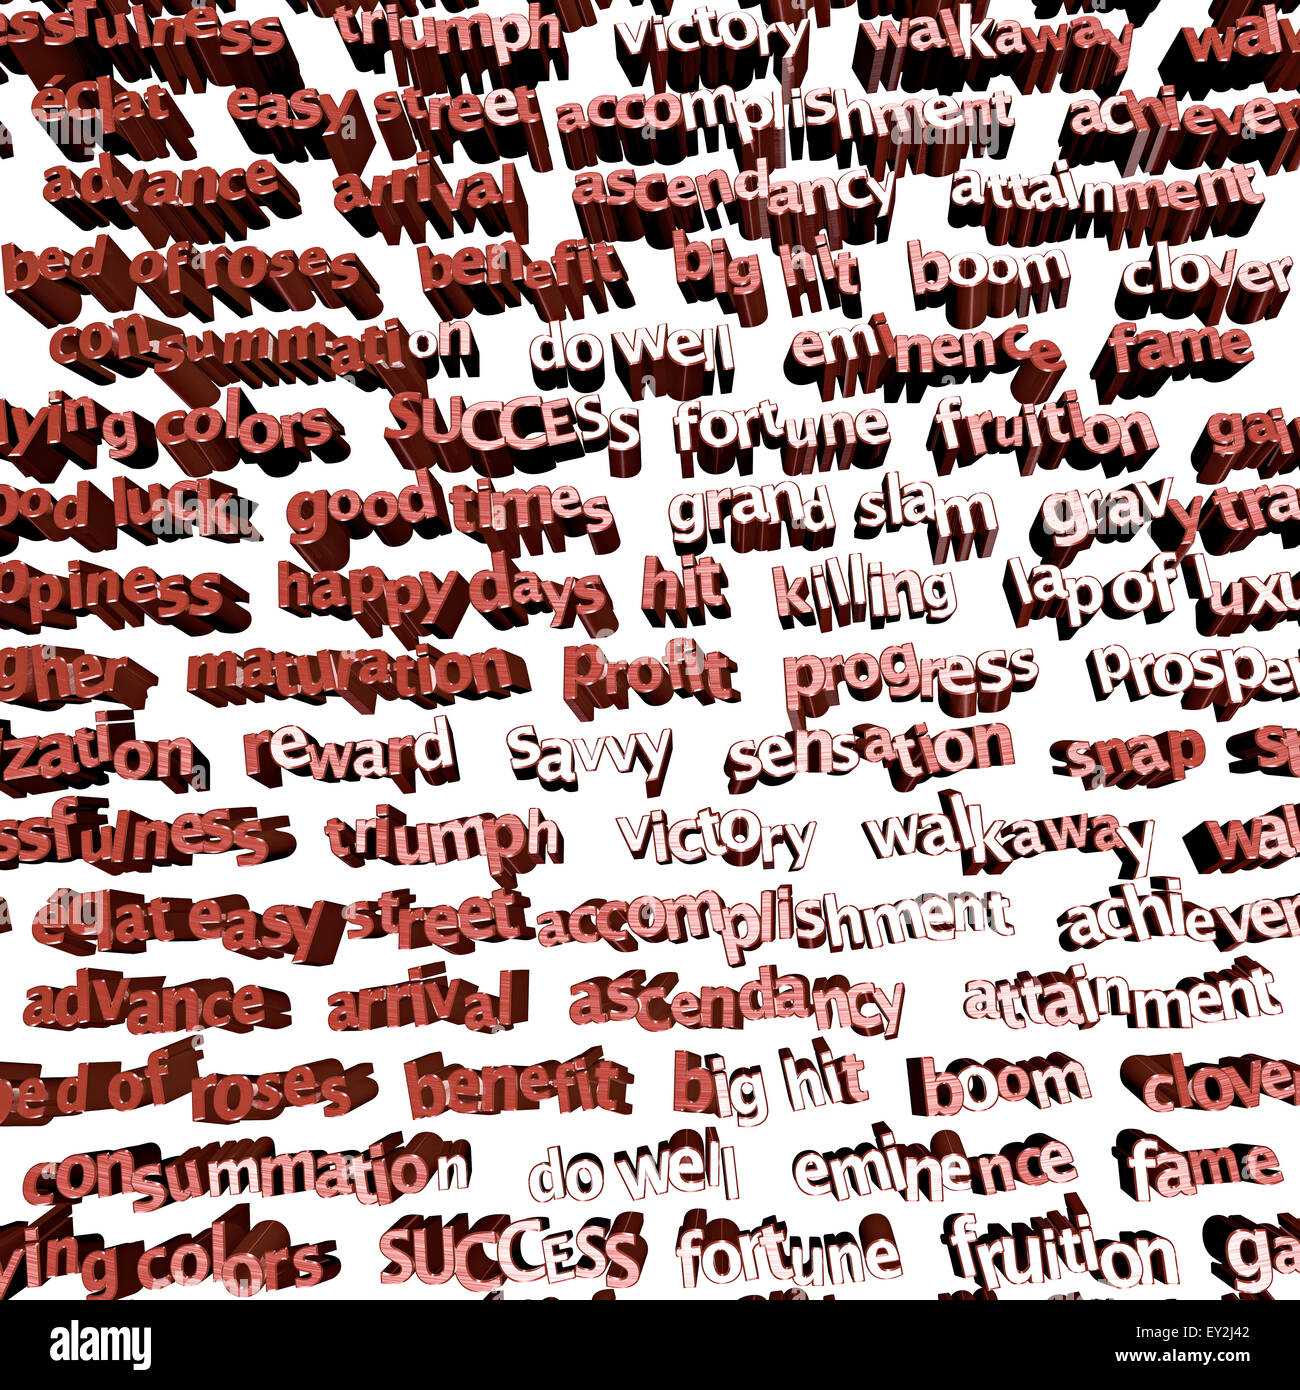 essfulness triumph victory walkaway walv
éclat easy street accomplishment achiever
advance arrival ascendancy attainment
bed of roses benefit big hit boom clover
consummation do well eminence fame
lying colors SUCCESS fortune fruition gain
ood luck good times grand slam gravy tra
ppiness happy days hit killing lap of luxu
gher maturation profit progress prosper
ization reward savvy sensation snap sn
essfulness triumph victory walkaway wal
éclat easy street accomplishment achiever
advance arrival ascendancy attainment
bed of roses benefit big hit boom clover
consummation do well eminence fame
ying colors SUCCESS fortune fruition ga
a alamy stock photo
alamy
Image ID: EY2J42
www.alamy.com